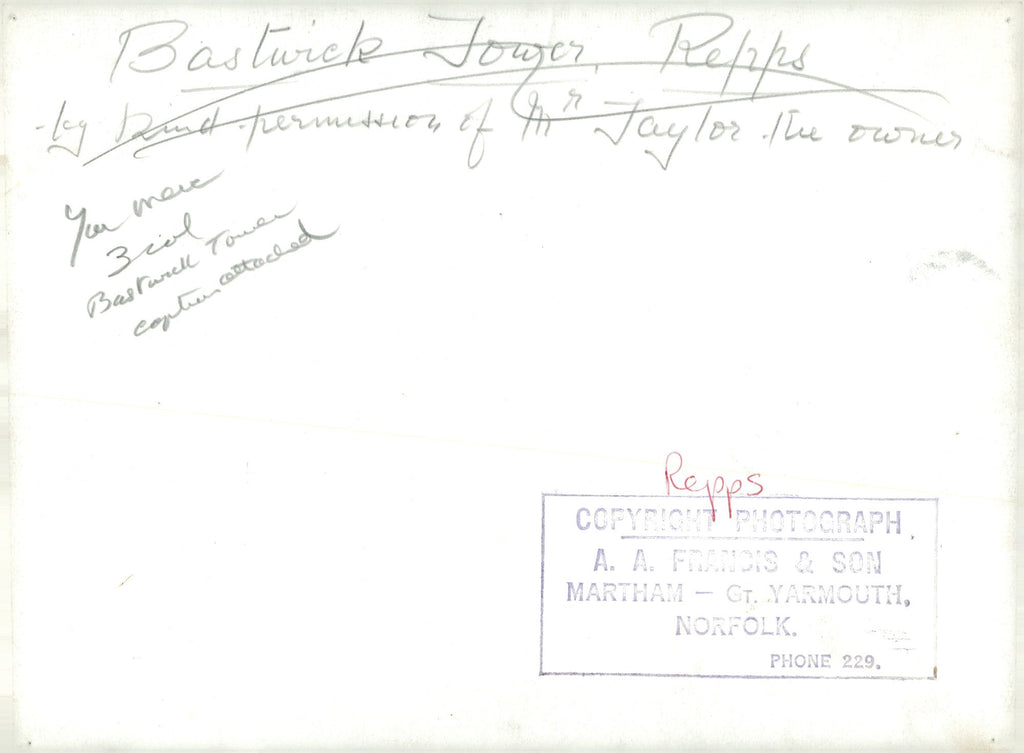 Bastwick Tower, Repps
by kind permission of Mr Taylor the owner
3 col
Bastwick Tower
caption attached
Repps
COPYRIGHT PHOTOGRAPH,
A. A. FRANCIS & SON
MARTHAM — GT. YARMOUTH,
NORFOLK.
PHONE 229.